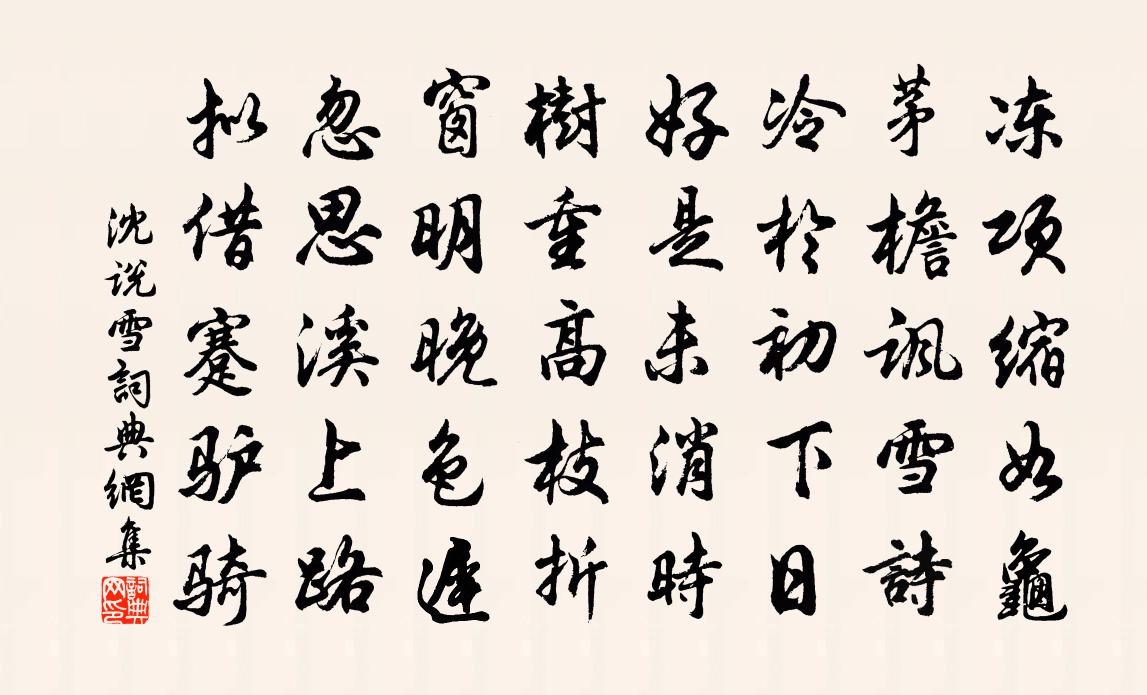 冻项缩如龜
茅檐讽雪詩
冷於初下日
好是未消時
樹重高枝折
窗明晚色遲
忽思溪上路
拟借蹇驴骑
沈说雪詞典網集
詞典网印